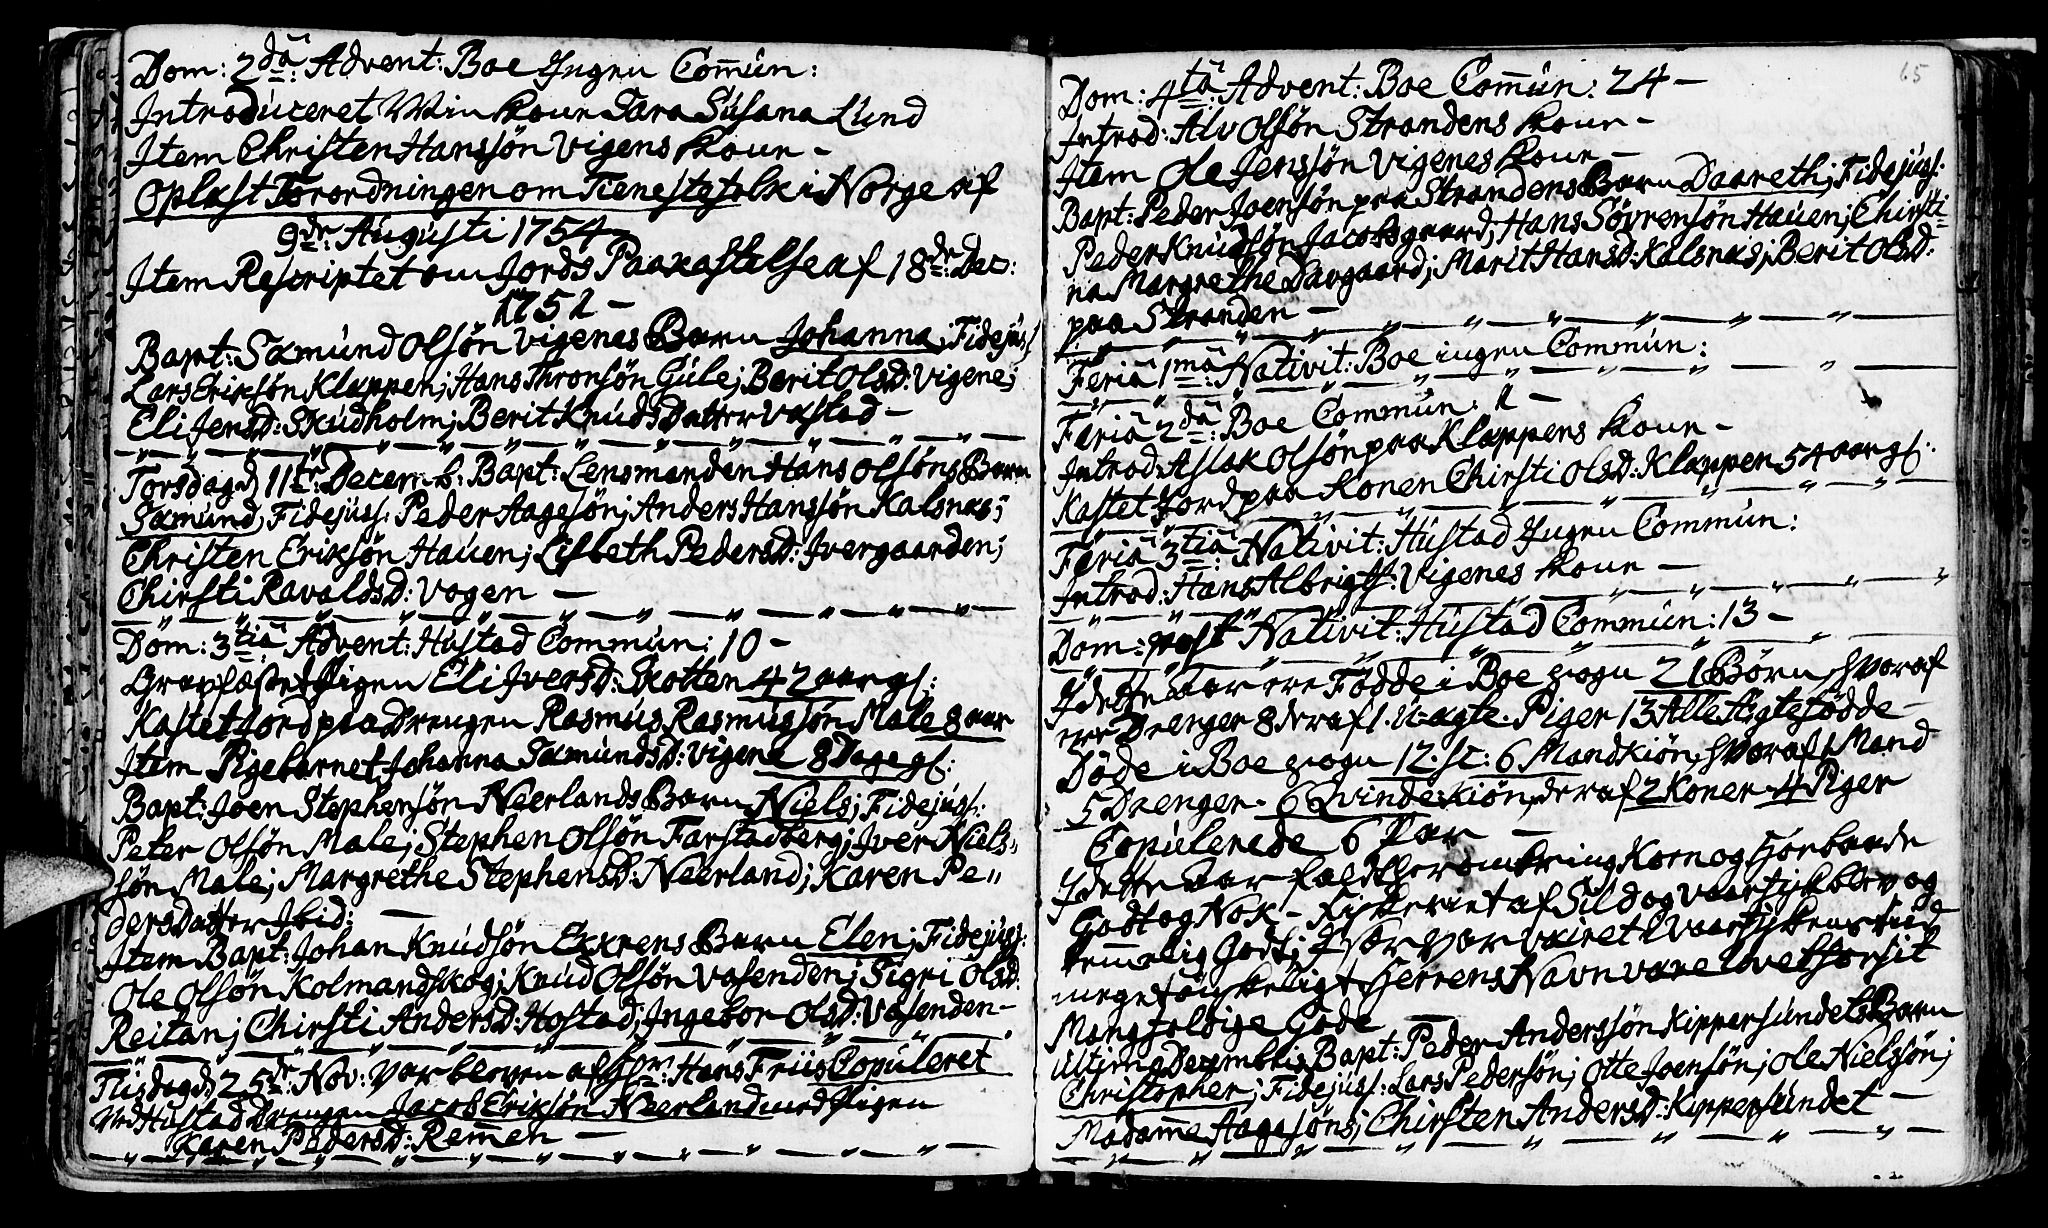 Dom: 2da: Advent: Boe Ingen Comun:
Introduceret Min Kone Sara Susana Lund
Item Christen Hanssön Vigens Kone –
Oplæst Forordningen om Tienestefolk i Norge af
9de: Augusti 1754
Item Rescriptet om Jords Paakastelse af 18de: Dec:
1751 –
Bapt: Sæmund Olsön Vigenes Barn Johanna; Fidejuss:
Lars Eriksön Klappen; Hans Thronsön Gule; Berit Olsd: Vigene;
Eli Jensd: Skudholm; Berit Knuds Datter Vastad –
Torsdag d 11te: Decemb: Bapt: Lensmanden Hans Olsöns Barn
Sæmund; Fidejuss: Peder Aagesön; Anders Hanssön Kalsnæs;
Christen Eriksön Hauen; Lisbeth Pedersd: Ivergaarden;
Chirsti Ravaldsd: Vogen –
Dom: 3tia: Advent: Hustad Commun: 10 –
Gravfæstet Pigen Eli Iversd: Skotten 42 aar gl:
Kastet Jord paa Drengen Rasmus Rasmussön Male 8 aar
Item Pigebarnet Johanna Sæmundsd: Vigene 8 Dage gl:
Bapt: Joen Stephensön Neerlands Barn Niels; Fidejuss:
Peter Olsön Male; Stephen Olsön Farstadberg; Iver Niels-
sön Male; Margrethe Stephensd: Neerland; Karen Pe-
dersdatter Ibid;
Item Bapt: Johan Knudsön Exxrens Barn Elen; Fidejuss:
Ole Olsön Kolmandskog; Knud Olsön Vasenden; Sigri Olsd:
Reitan; Chirsti Andersd: Hostad; Ingebor Olsd: Vasenden –
Tiisdag d 25de: Nov: var bleven af Hr: Hans Friis Copuleret
ved Hustad Drengen Jacob Eriksön Neerland med Pigen
Karen Pedersd: Remen –
65
Dom: 4ta: Advent: Boe Comun: 24 –
Introd: Alv Olsön Strandens Kone –
Item Ole Jenssön Vigenes Kone –
Bapt: Peder Joensön paa Strandens Barn Daareth; Fidejuss:
Peder Knudsön Jacobsgaard; Hans Sövrensön Hauen; Chirsti-
na Margrethe Davgaard; Marit Hansd: Kalsnæs; Berit Olsd:
paa Stranden –
Feria 1ma: Nativit: Boe ingen Commun:
Feria 2da: Boe Commun: 2 –
Introd: Aslak Olsön paa Klappens Kone –
Kastet Jord paa Konen Chirsti Olsd: Klappen 54 aar gl:
Feria 3tia: Nativit: Hustad Ingen Commun:
Introd: Hans Albrigts: Vigenes Kone –
Dom: post Nativit: Hustad Commun: 13 –
I dette Aar ere Fødde i Boe Sogn 21 Børn, hvoraf
ere Drenger 8 deraf 1. Uægte. Piger 13 Alle Ægtefødde –
Døde i Boe Sogn 12. sc: 6 Mandkiön, hvoraf 1 Mand
5 Drenger. 6 Qvindekiön, deraf 2 Koner 4 Piger
Copulerede 6 Par –
I dette Aar faldt her omkring Korn og Høe baade
Godt og Nok – Fiskeriet af Sild og Vaarfisk blev og
temmelig Godt;
meget önskeligt Herrens Navn være lovet for sit
Mangfoldige Gode –
Ultimo Decembris Bapt: Peder Anderssön Kippersundets Barn
Christopher; Fidejuss: Lars Pedersön; Otte Joensön; Ole Nielsön;
Madame Aagesöns; Chirsten Andersd: Kippersundet –